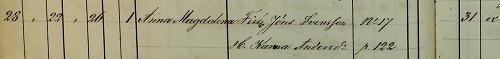 28 " 22 " 26 1 Anna Magdalena Fisk. Jöns Svensson No 17 31 ex
o. h. Karna Andersdr p. 122